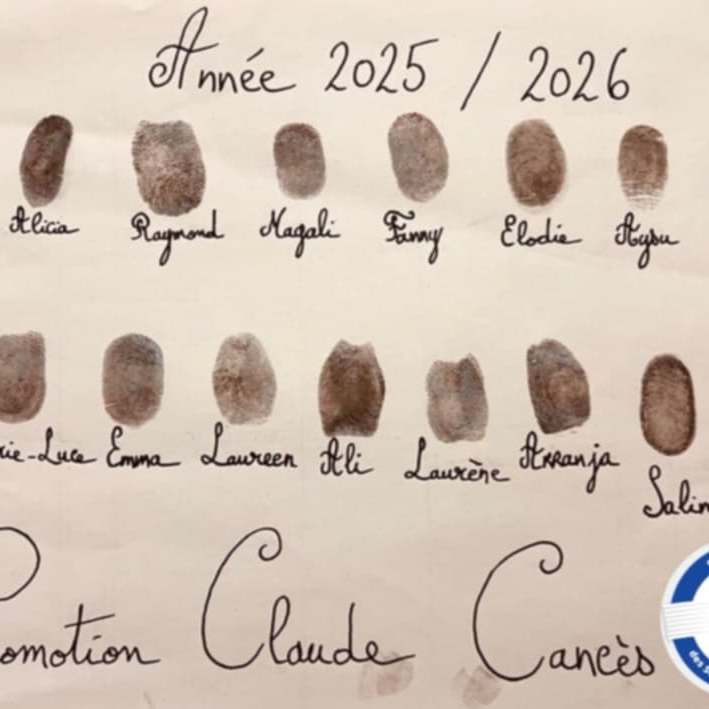 Année 2025 / 2026
Alicia Raymond Magali Fanny Elodie Aysu
rie-Luce Emma Laureen Ali Laurène Arranja
Salin
romotion Claude Cancès
des S